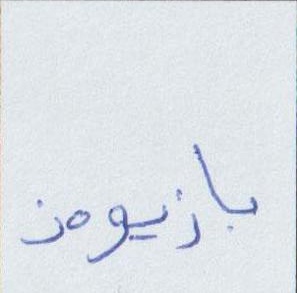 بازیوەز